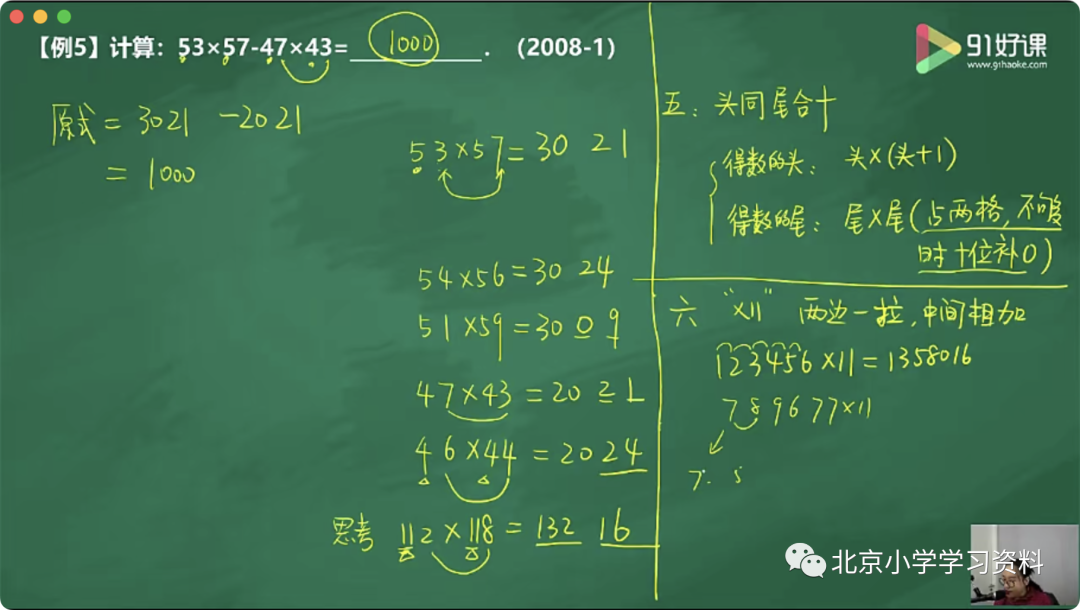 【例5】计算：53×57-47×43= 1000 . （2008-1）
91好课
www.91haoke.com
原式 = 3021 -2021
= 1000
53×57=30 21
54×56=30 24
51×59=30 0 9
47×43=20 21
46×44=20 24
思考 112×118=132 16
五：头同尾合十
得数的头：头×(头+1)
得数的尾：尾×尾(占两格,不够
时十位补0)
六 "×11" 两边一拉,中间相加
123456×11=1358016
789677×11
7. 5
北京小学学习资料